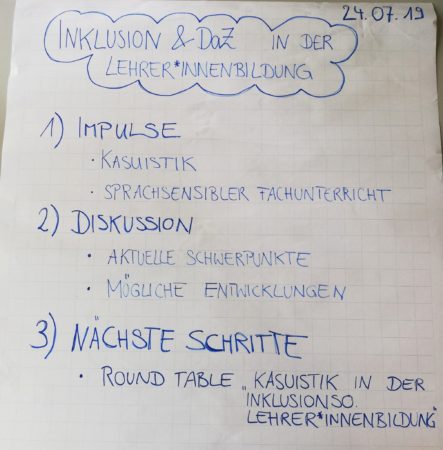 24.07.19
INKLUSION & DaZ IN DER
LEHRER*INNENBILDUNG
1) IMPULSE
• KASUISTIK
• SPRACHSENSIBLER FACHUNTERRICHT
2) DISKUSSION
• AKTUELLE SCHWERPUNKTE
• MÖGLICHE ENTWICKLUNGEN
3) NÄCHSTE SCHRITTE
• ROUND TABLE „KASUISTIK IN DER
INKLUSIONSO.
LEHRER*INNENBILDUNG"